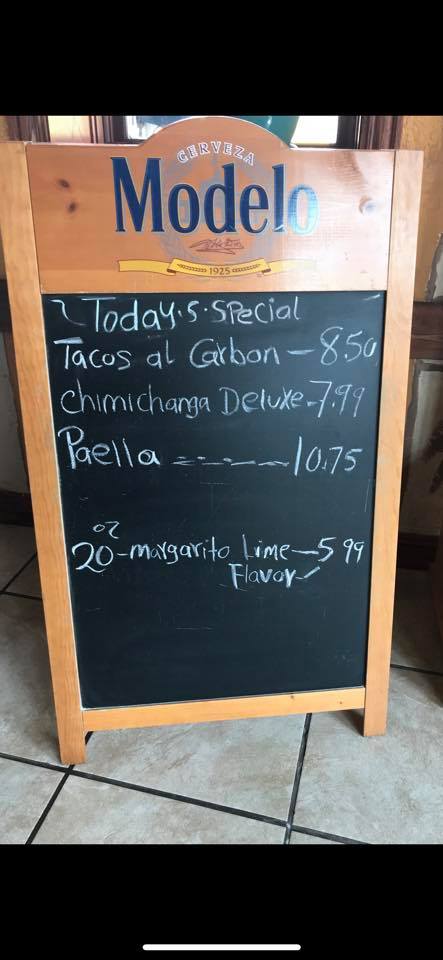 CERVEZA
Modelo
1925
Today.s.special
Tacos al Carbon - 8.50
chimichanga Deluxe - 7.99
Paella ------ 10.75
oz
20 - margarito Lime - 5 99
Flavor